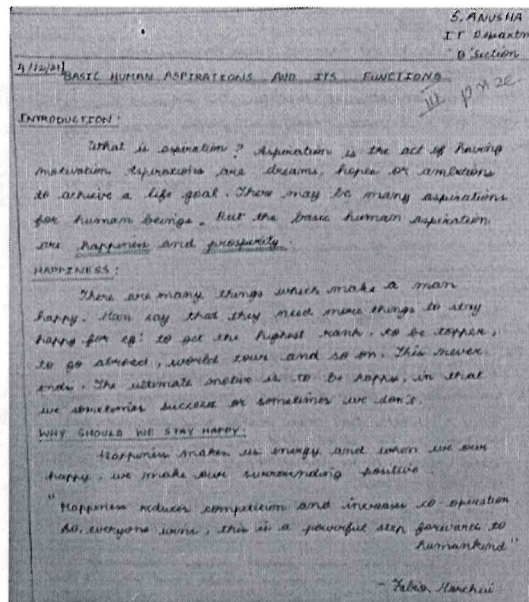 S. ANUSHA
IT Departm
'D' Section
4/12/21
BASIC HUMAN ASPIRATIONS AND ITS FUNCTIONS
III prize
INTRODUCTION:
What is aspiration? Aspiration is the act of having
motivation Aspirations are dreams, hopes or ambitions
to achieve a life goal. There may be many aspirations
for human beings. But the basic human aspiration
are happiness and prosperity.
HAPPINESS:
There are many things which make a man
happy. Man say that they need more things to stay
happy for eg: to get the highest rank, to be topper,
to go abroad, world tour and so on. This never
ends. The ultimate motive is to be happy, in that
we sometimes succeed or sometimes we don't.
WHY SHOULD WE STAY HAPPY:
Happiness makes us energy and when we are
happy, we make our surrounding positive.
"Happiness reduces competition and increases co-operation
so, everyone wins, this is a powerful step forward to
humankind"
- Fabio